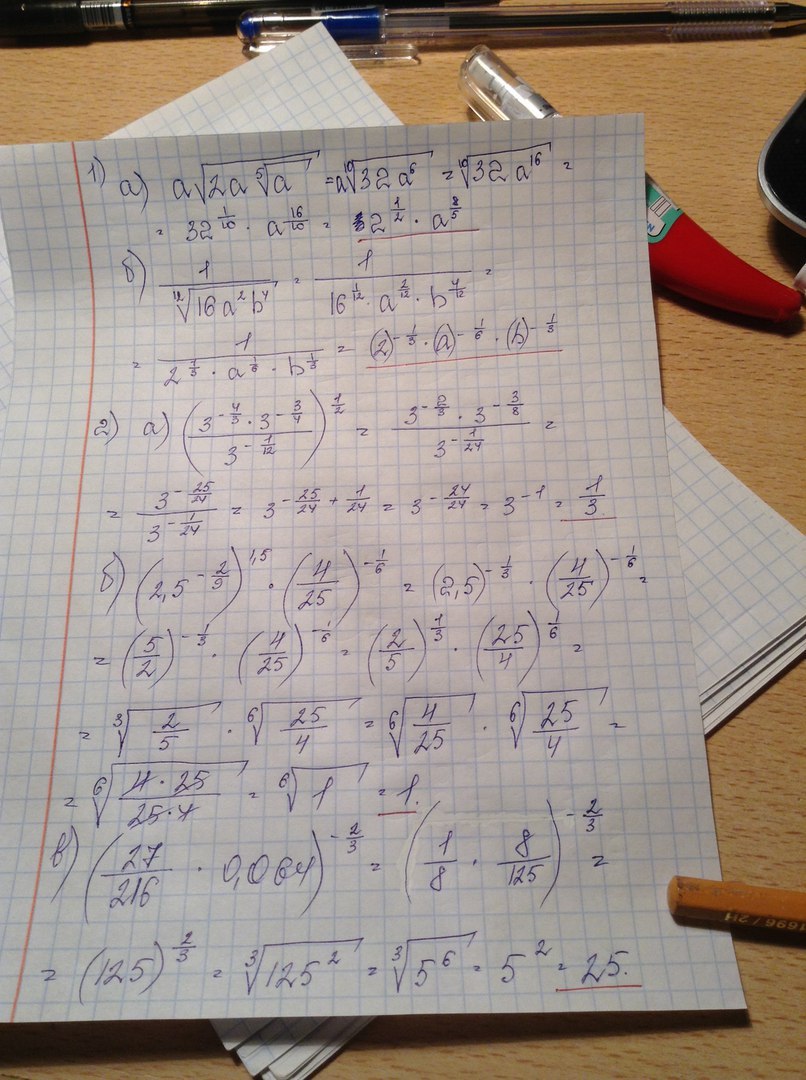 1) а) a√(2a ⁵√a) = a ¹⁰√(32a⁶) = ¹⁰√(32a¹⁶) =
= 32^(1/10) · a^(16/10) = 2^(1/2) · a^(8/5)
б) 1/¹²√(16a²b⁴) = 1/(16^(1/12) · a^(2/12) · b^(4/12)) =
= 1/(2^(1/3) · a^(1/6) · b^(1/3)) = (2)^(-1/3) · (a)^(-1/6) · (b)^(-1/3)
2) а) ((3^(-4/3) · 3^(-3/4))/3^(-1/12))^(1/2) = (3^(-2/3) · 3^(-3/8))/3^(-1/24) =
= 3^(-25/24)/3^(-1/24) = 3^(-25/24 + 1/24) = 3^(-24/24) = 3^(-1) = 1/3
б) (2,5^(-2/9))^(1,5) · (4/25)^(-1/6) = (2,5)^(-1/3) · (4/25)^(-1/6) =
= (5/2)^(-1/3) · (4/25)^(-1/6) = (2/5)^(1/3) · (25/4)^(1/6) =
= ³√(2/5) · ⁶√(25/4) = ⁶√(4/25) · ⁶√(25/4) =
= ⁶√((4·25)/(25·4)) = ⁶√1 = 1.
в) (27/216 · 0,064)^(-2/3) = (1/8 · 8/125)^(-2/3) =
= (125)^(2/3) = ³√(125²) = ³√(5⁶) = 5² = 25.
1696/2H